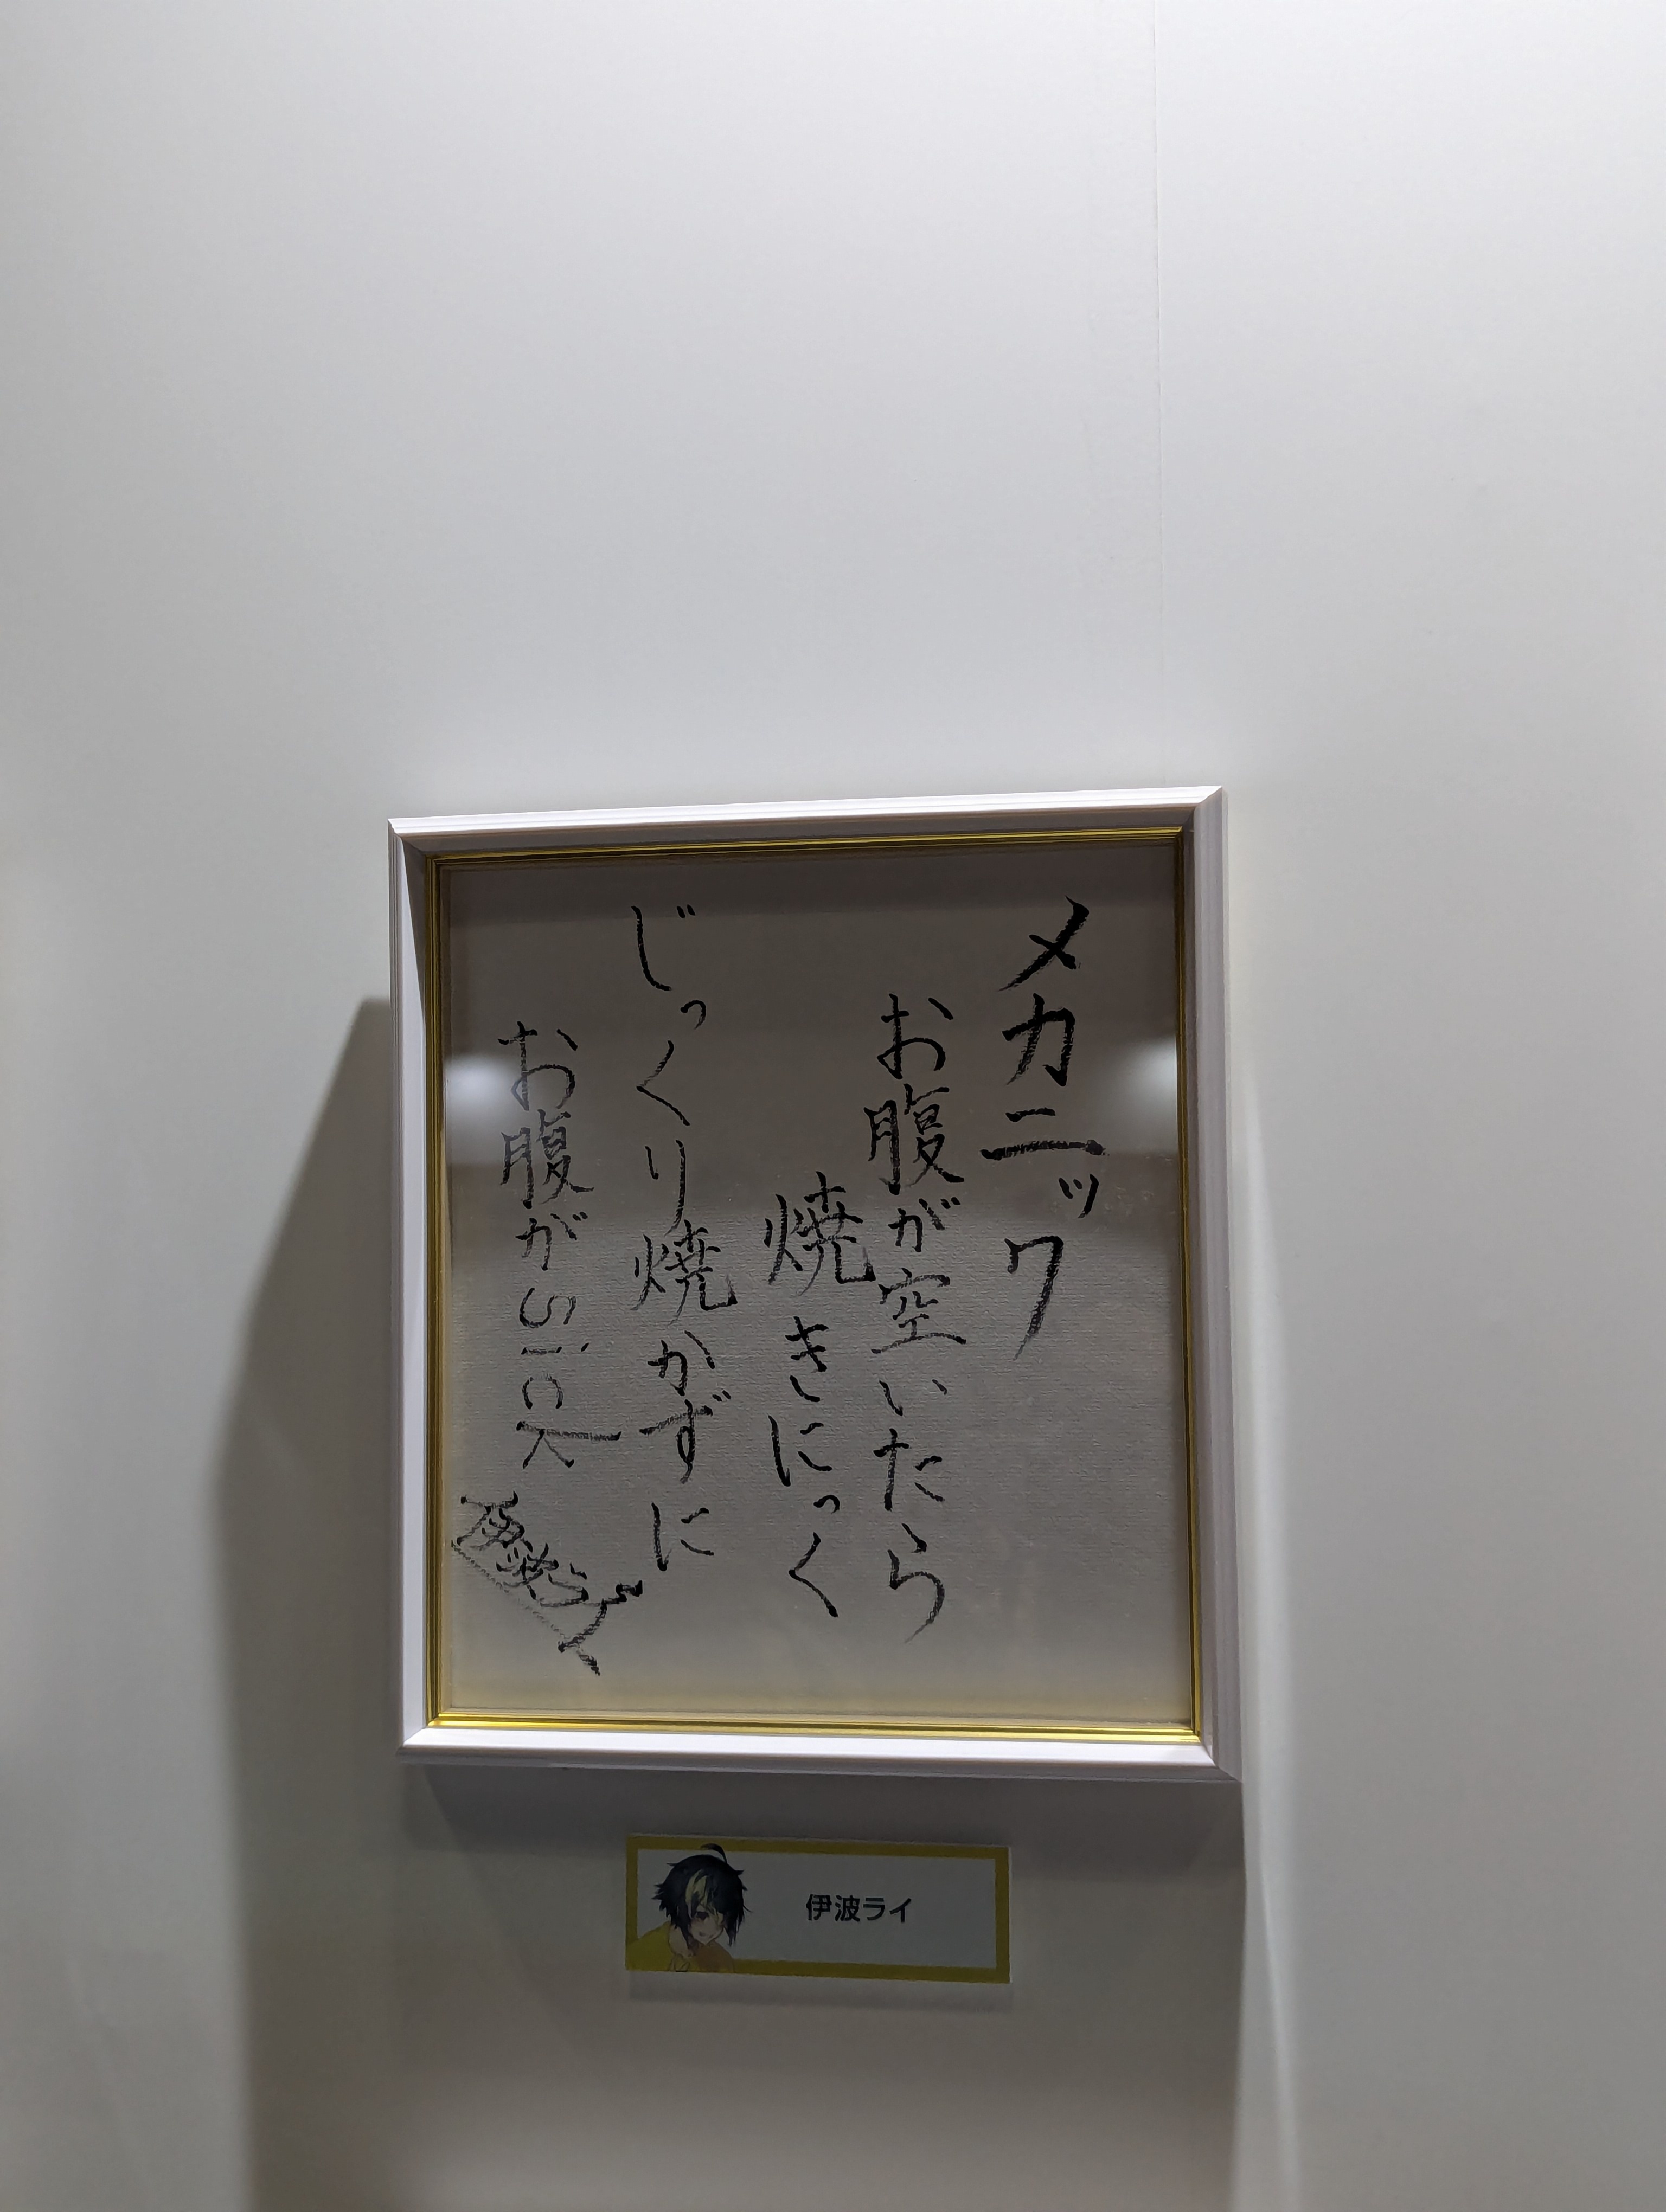 メカニック
お腹が空いたら
焼きにっく
じっくり焼かずに
お腹がsick
伊波ライ
伊波ライ